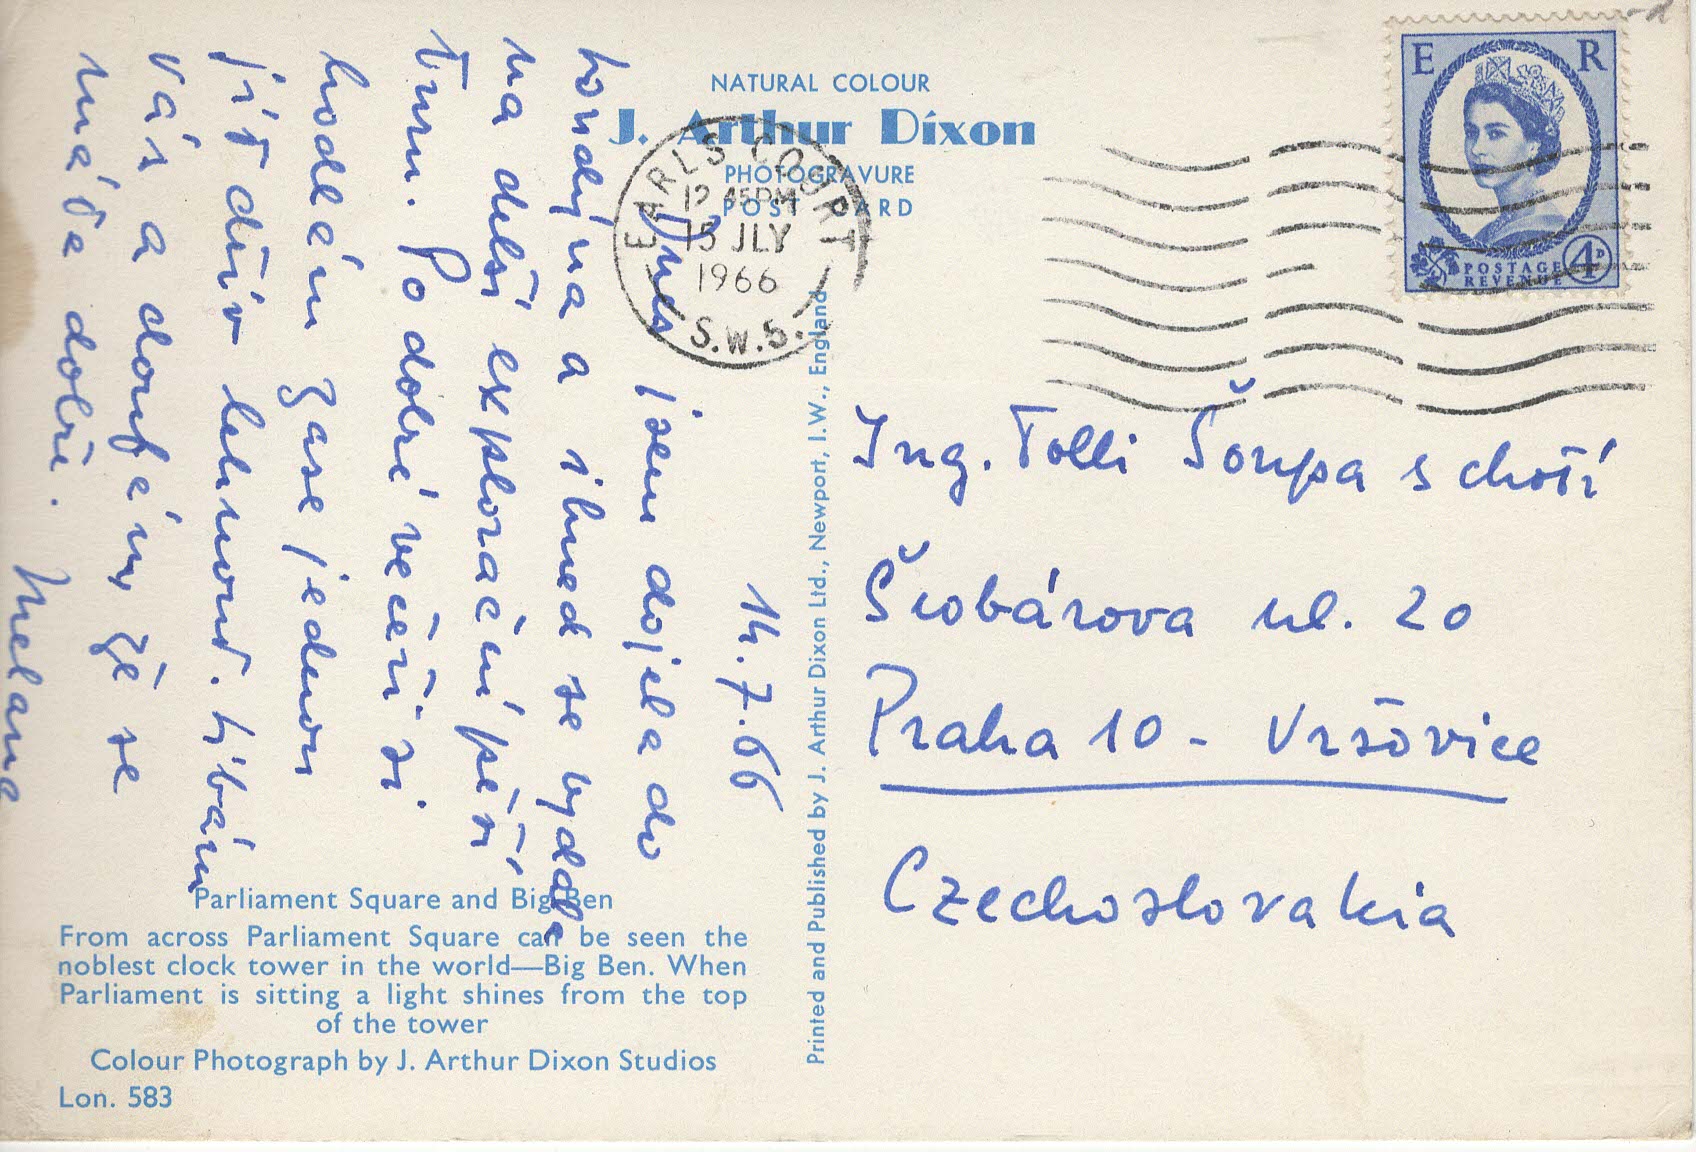 NATURAL COLOUR
J. Arthur Dixon
PHOTOGRAVURE
POST CARD
EARLS COURT
12 45 PM
15 JLY
1966
S.W.5.
E R
POSTAGE
REVENUE
4D
14.7.66
Dnes jsem dojela do
Londýna a ihned se vydala
na delší explorační pěší
túru. Po dobré večeři si
hodlám zase jednou
jít dřív lehnout. Líbám
Vás a doufám, že se
máte dobře.
Melana
Ing. Tolli Šoupa s chotí
Šrobárova ul. 20
Praha 10 - Vršovice
Czechoslovakia
Parliament Square and Big Ben
From across Parliament Square can be seen the
noblest clock tower in the world—Big Ben. When
Parliament is sitting a light shines from the top
of the tower
Colour Photograph by J. Arthur Dixon Studios
Lon. 583
Printed and Published by J. Arthur Dixon Ltd., Newport, I.W., England